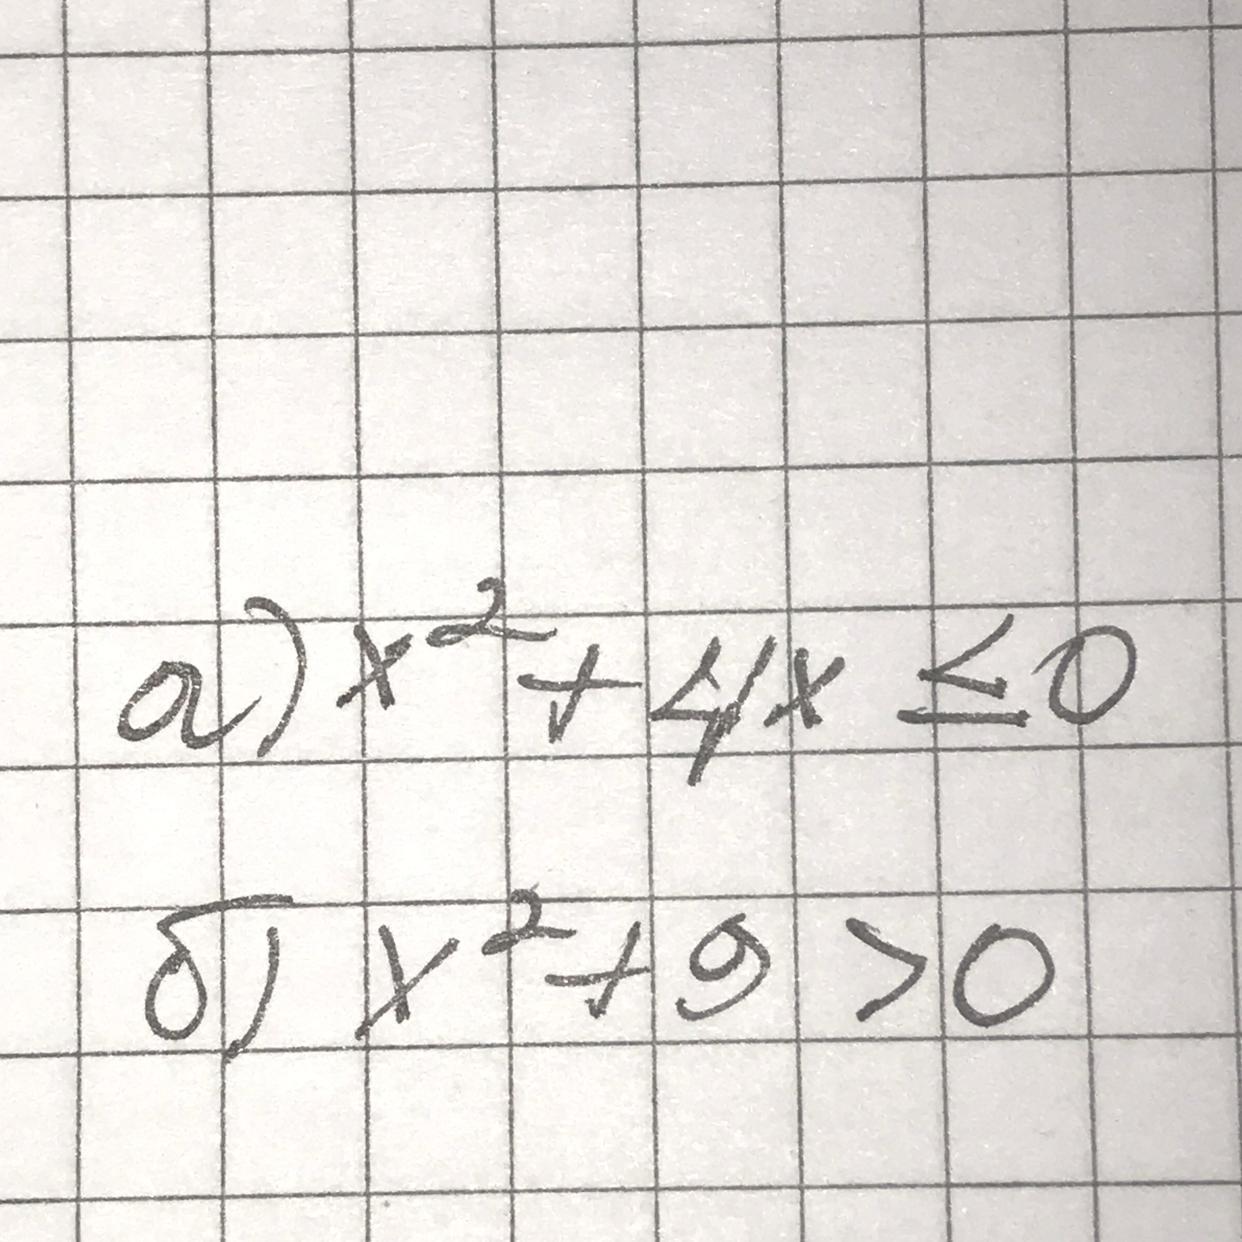 а) x² + 4x ≤ 0
б) x² + 9 > 0